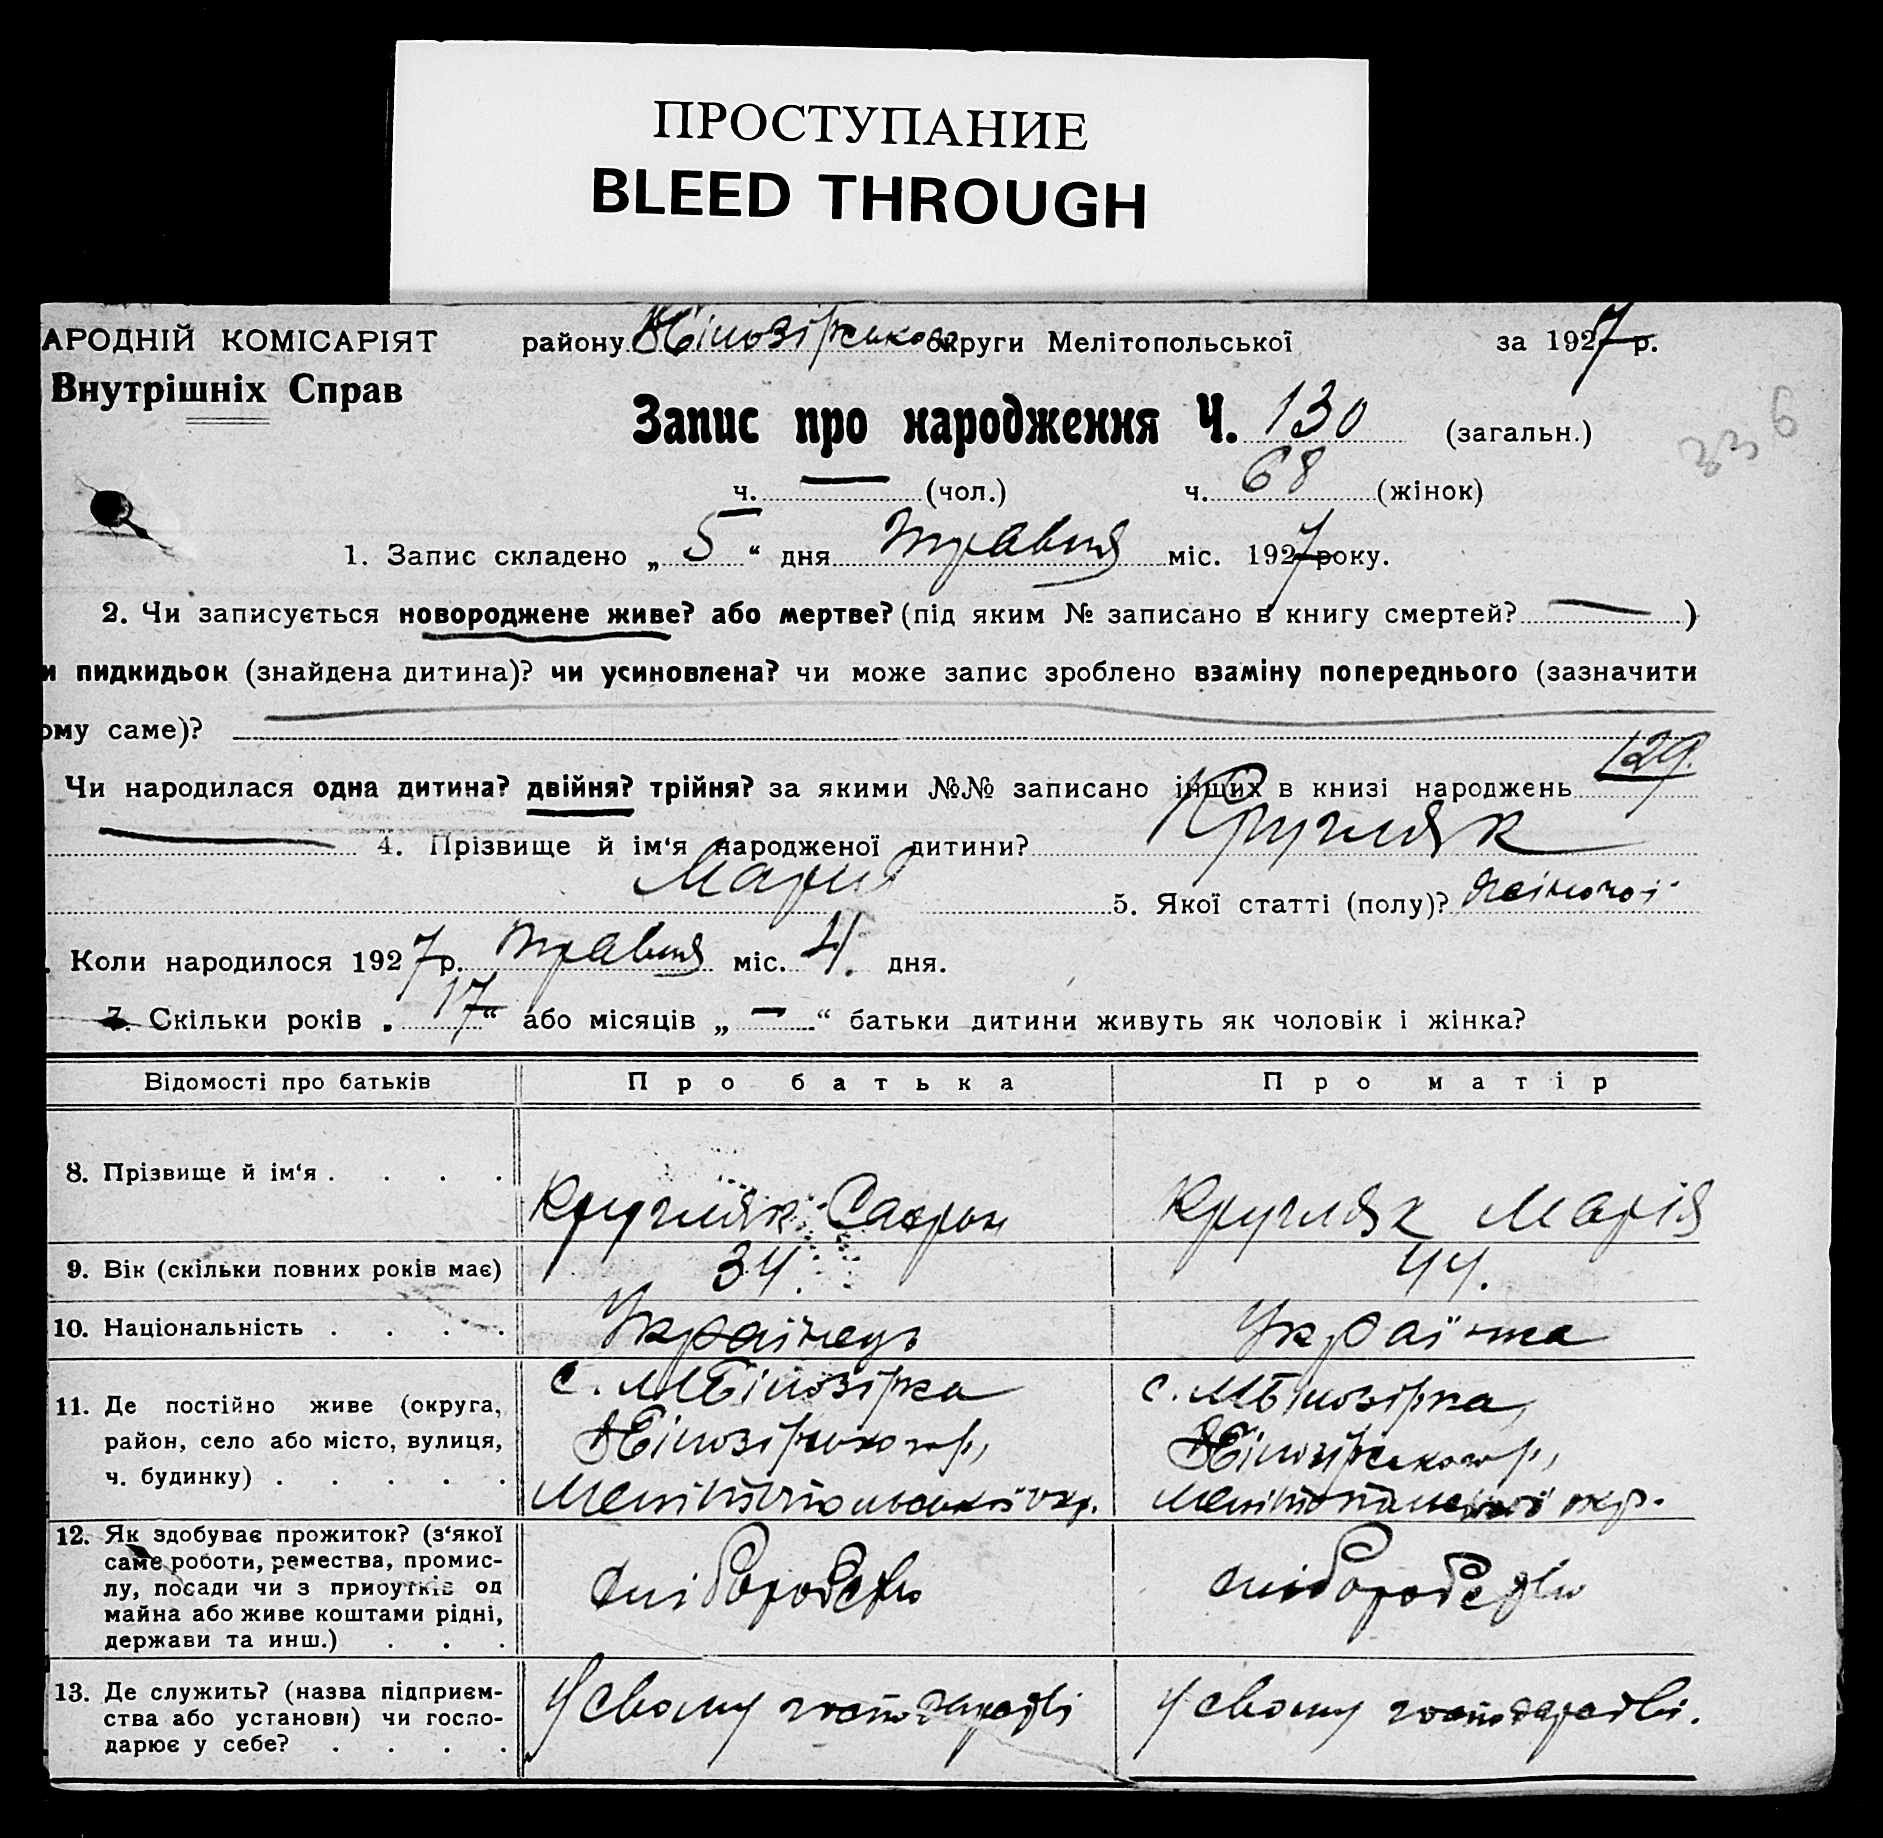 ПРОСТУПАНИЕ
BLEED THROUGH
АРОДНІЙ КОМІСАРІЯТ району В Білозірсько округи Мелітопольської за 1927 р.
Внутрішніх Справ
Запис про народження Ч. 130 (загальн.)
336
ч. — (чол.) ч. 68 (жінок)
1. Запис складено „ 5 “ дня травня міс. 1927 року.
2. Чи записується новороджене живе? або мертве? (під яким № записано в книгу смертей? — )
и пидкидьок (знайдена дитина)? чи усиновлена? чи може запис зроблено взаміну попереднього (зазначити
ому саме)?
Чи народилася одна дитина? двійня? трійня? за якими №№ записано інших в книзі народжень 129.
— 4. Прізвище й ім‘я народженої дитини? Кругляк
Мария 5. Якої статті (полу)? жіночоі
. Коли народилося 1927 р. травня міс. 4. дня.
7. Скільки років „ 17 “ або місяців „ — “ батьки дитини живуть як чоловік і жінка?
Відомості про батьків Про батька Про матір
8. Прізвище й ім‘я . . . . Кругляк Сафрон Кругляк Марія
9. Вік (скільки повних років має) 34. 44.
10. Національність . . . . Українець Українка
11. Де постійно живе (округа, с. М Білозірка с. М Білозірка,
район, село або місто, вулиця, В Білозірського р., В Білозірського р.,
ч. будинку) . . . . . Мелітопольської окр. Мелітопольської окр.
12. Як здобуває прожиток? (з‘якої
саме роботи, ремества, промис-
лу, посади чи з прибутків од хліборобство хліборобство
майна або живе коштами рідні,
держави та инш.) . . .
13. Де служить? (назва підприєм- У своому господарстві У своому господарстві.
ства або установи) чи госпо-
дарює у себе? . . . .